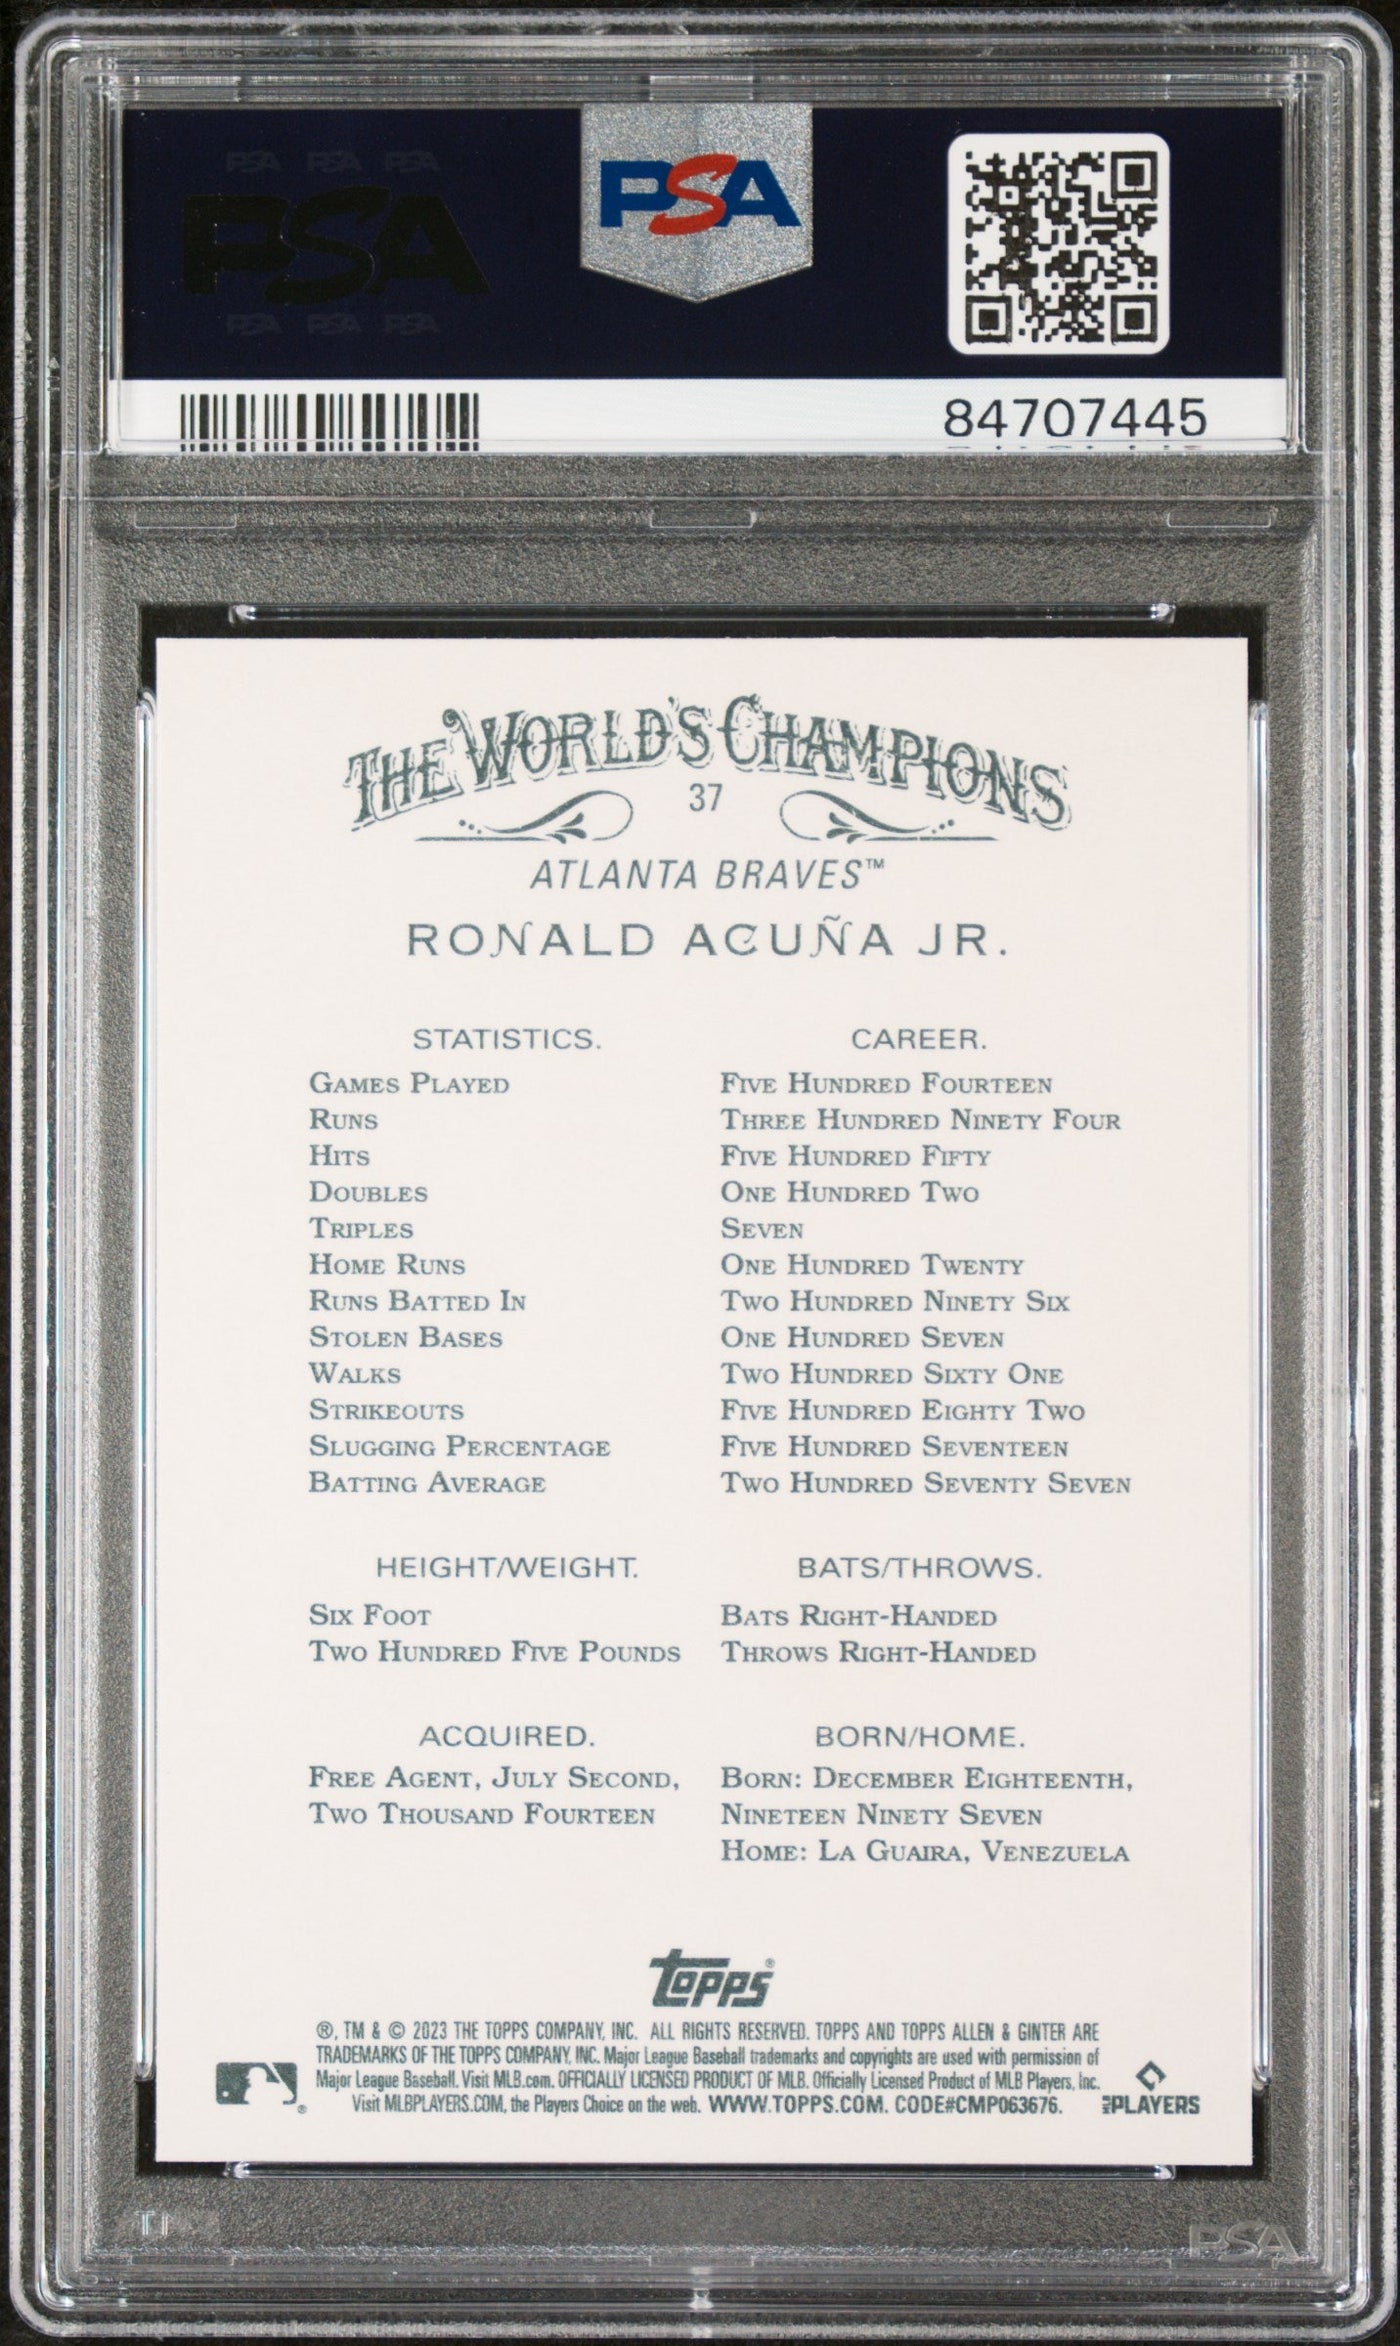 PSA PSA PSA
PSA
PSA
PSA PSA PSA
84707445
THE WORLD'S CHAMPIONS
37
ATLANTA BRAVES™
RONALD ACUÑA JR.
STATISTICS. CAREER.
GAMES PLAYED FIVE HUNDRED FOURTEEN
RUNS THREE HUNDRED NINETY FOUR
HITS FIVE HUNDRED FIFTY
DOUBLES ONE HUNDRED TWO
TRIPLES SEVEN
HOME RUNS ONE HUNDRED TWENTY
RUNS BATTED IN TWO HUNDRED NINETY SIX
STOLEN BASES ONE HUNDRED SEVEN
WALKS TWO HUNDRED SIXTY ONE
STRIKEOUTS FIVE HUNDRED EIGHTY TWO
SLUGGING PERCENTAGE FIVE HUNDRED SEVENTEEN
BATTING AVERAGE TWO HUNDRED SEVENTY SEVEN
HEIGHT/WEIGHT. BATS/THROWS.
SIX FOOT BATS RIGHT-HANDED
TWO HUNDRED FIVE POUNDS THROWS RIGHT-HANDED
ACQUIRED. BORN/HOME.
FREE AGENT, JULY SECOND, BORN: DECEMBER EIGHTEENTH,
TWO THOUSAND FOURTEEN NINETEEN NINETY SEVEN
HOME: LA GUAIRA, VENEZUELA
topps®
®, TM & © 2023 THE TOPPS COMPANY, INC. ALL RIGHTS RESERVED. TOPPS AND TOPPS ALLEN & GINTER ARE
TRADEMARKS OF THE TOPPS COMPANY, INC. Major League Baseball trademarks and copyrights are used with permission of
Major League Baseball. Visit MLB.com. OFFICIALLY LICENSED PRODUCT OF MLB. Officially Licensed Product of MLB Players, Inc.
Visit MLBPLAYERS.COM, the Players Choice on the web. WWW.TOPPS.COM. CODE#CMP063676.
MLB PLAYERS
PSA